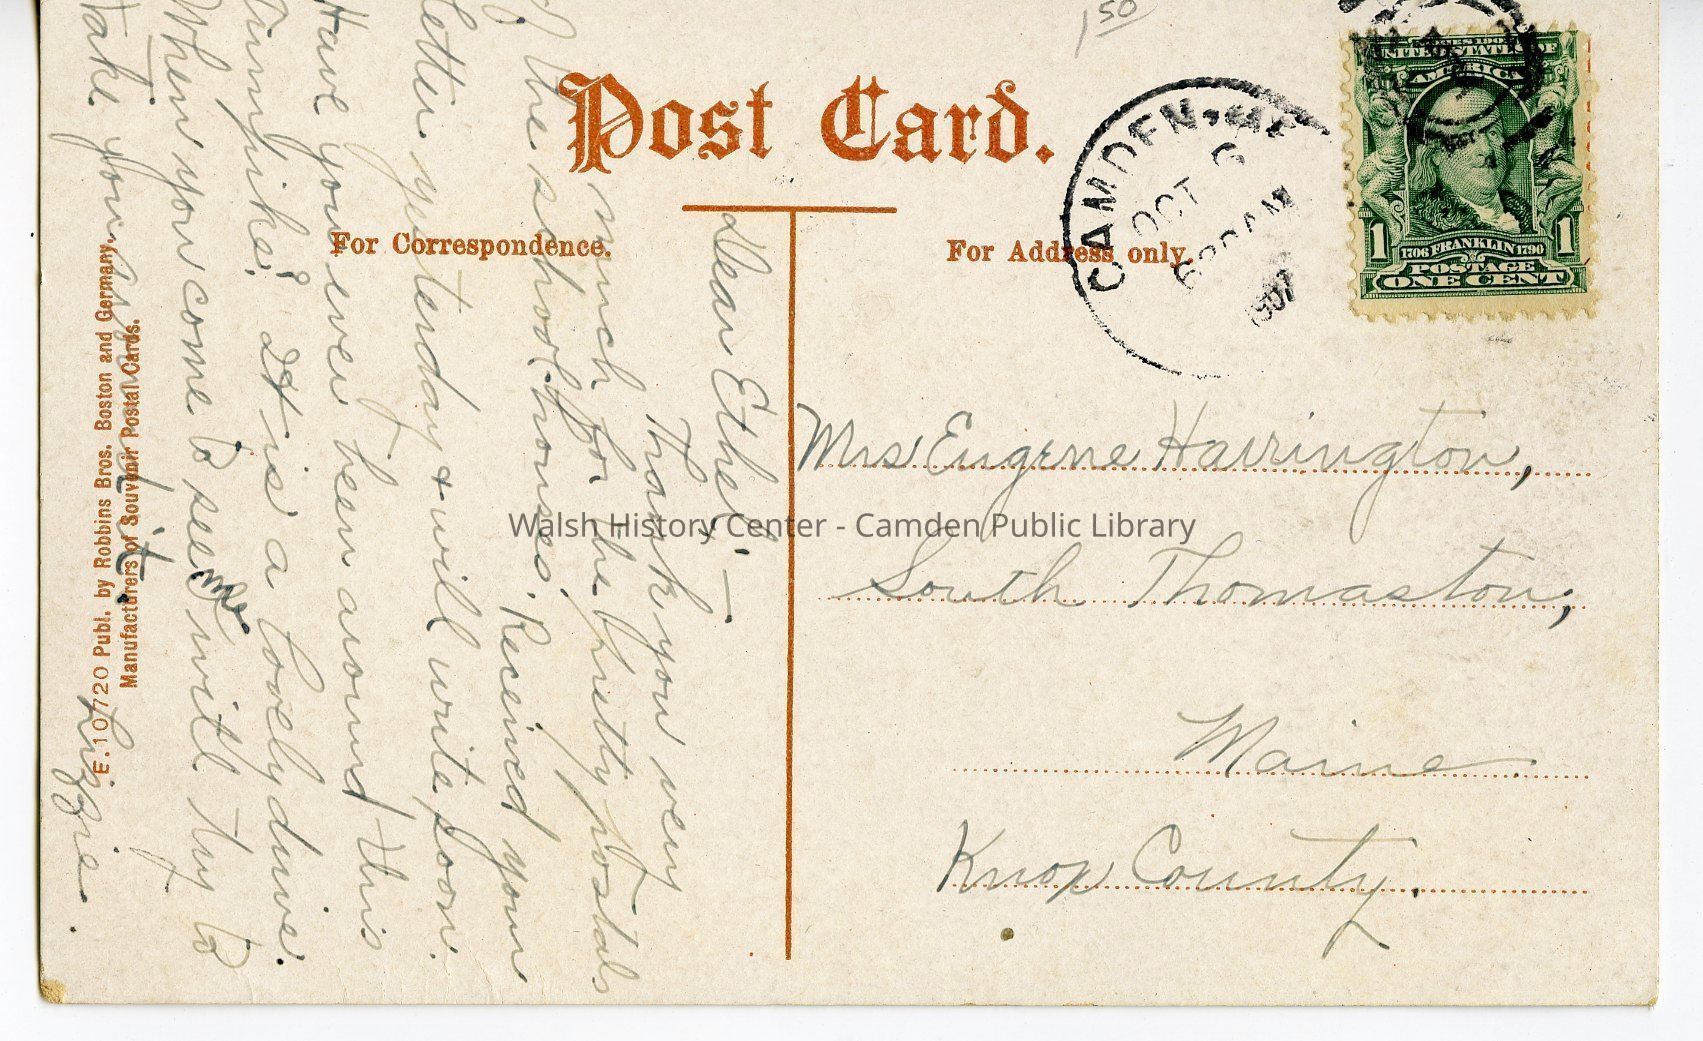 1 50
Post Card.
For Correspondence.
For Address only.
CAMDEN, ME.
OCT 6
630 AM
1907
UNITED STATES OF
AMERICA
1706 FRANKLIN 1790
1 1
POSTAGE
ONE CENT
Dear Ethel:—
Thank you very
much for the pretty postals
of the school-houses. Received your
letter yesterday & will write soon.
Have you ever been around this
Turnpike? It is a lovely drive.
When you come to see me will try to
take you around it.
Lizzie.
Mrs Eugene Harrington,
South Thomaston,
Maine.
Knox County.
E. 10720 Publ. by Robbins Bros. Boston and Germany.
Manufacturers of Souvenir Postal Cards.
Walsh History Center - Camden Public Library